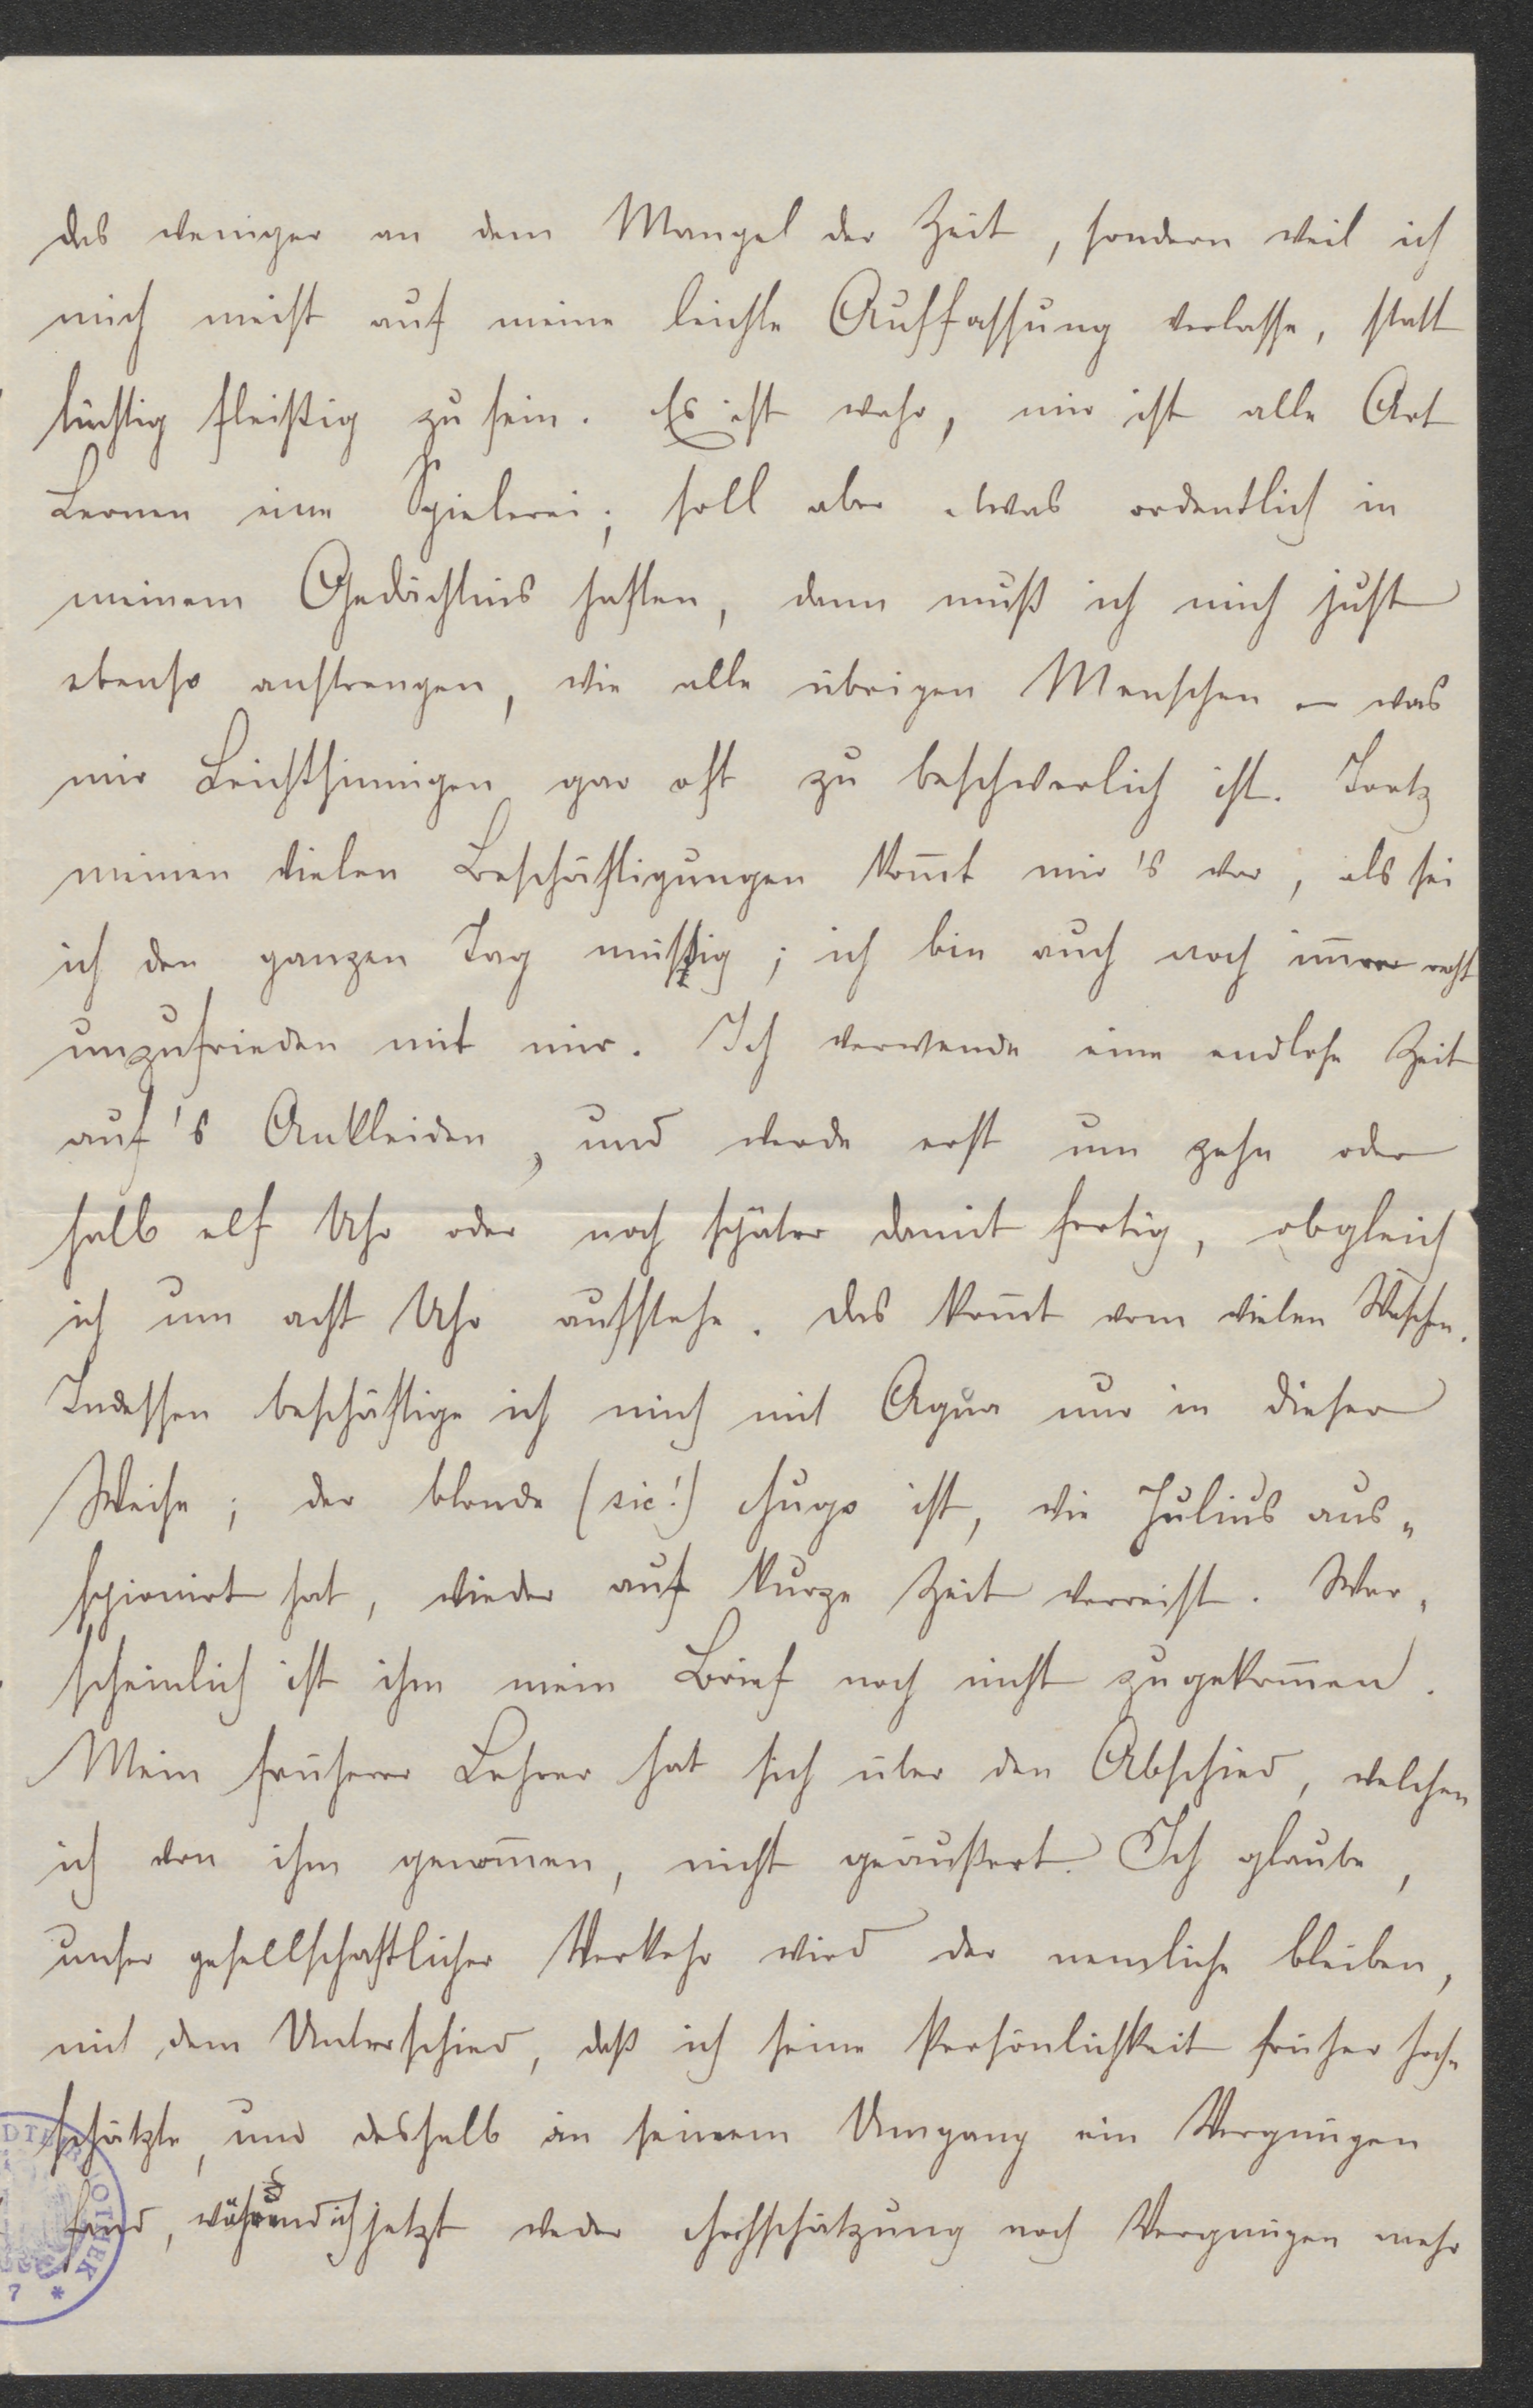 das weniger an dem Mangel der Zeit, sondern weil ich
mich meist auf meine leichte Auffassung verlasse, statt
tüchtig fleißig zu sein. Es ist wahr, mir ist alle Art
Lernen eine Spielerei; soll aber etwas ordentlich in
meinem Gedächtnis haften, dann muß ich mich just
ebenso anstrengen, wie alle übrigen Menschen – was
mir Leichtsinnigen gar oft zu beschwerlich ist. Trotz
meinen vielen Beschäftigungen kom̄t mir's vor, als sei
ich den ganzen Tag müßig; ich bin auch noch im̄er recht
unzufrieden mit mir. Ich verwende eine endlose Zeit
auf's Ankleiden, und werde erst um zehn oder
halb elf Uhr oder noch später damit fertig, obgleich
ich um acht Uhr aufstehe. Das kom̄t vom vielen Waschen.
Indessen beschäftige ich mich mit Aqua nur in dieser
Weise; der blonde (sic!) Hugo ist, wie Julius aus„
spionirt hat, wieder auf kurze Zeit verreist. War„
scheinlich ist ihm mein Brief noch nicht zugekom̄en.
Mein früherer Lehrer hat sich über den Abschied, welchen
ich von ihm genom̄en, nicht geäußert. Ich glaube,
unser gesellschaftlicher Verkehr wird der nemliche bleiben,
mit dem Unterschied, daß ich seine Persönlichkeit früher hoch„
schätzte, und deshalb an seinem Umgang ein Vergnügen
fand, während ich jetzt weder Hochschätzung noch Vergnügen mehr